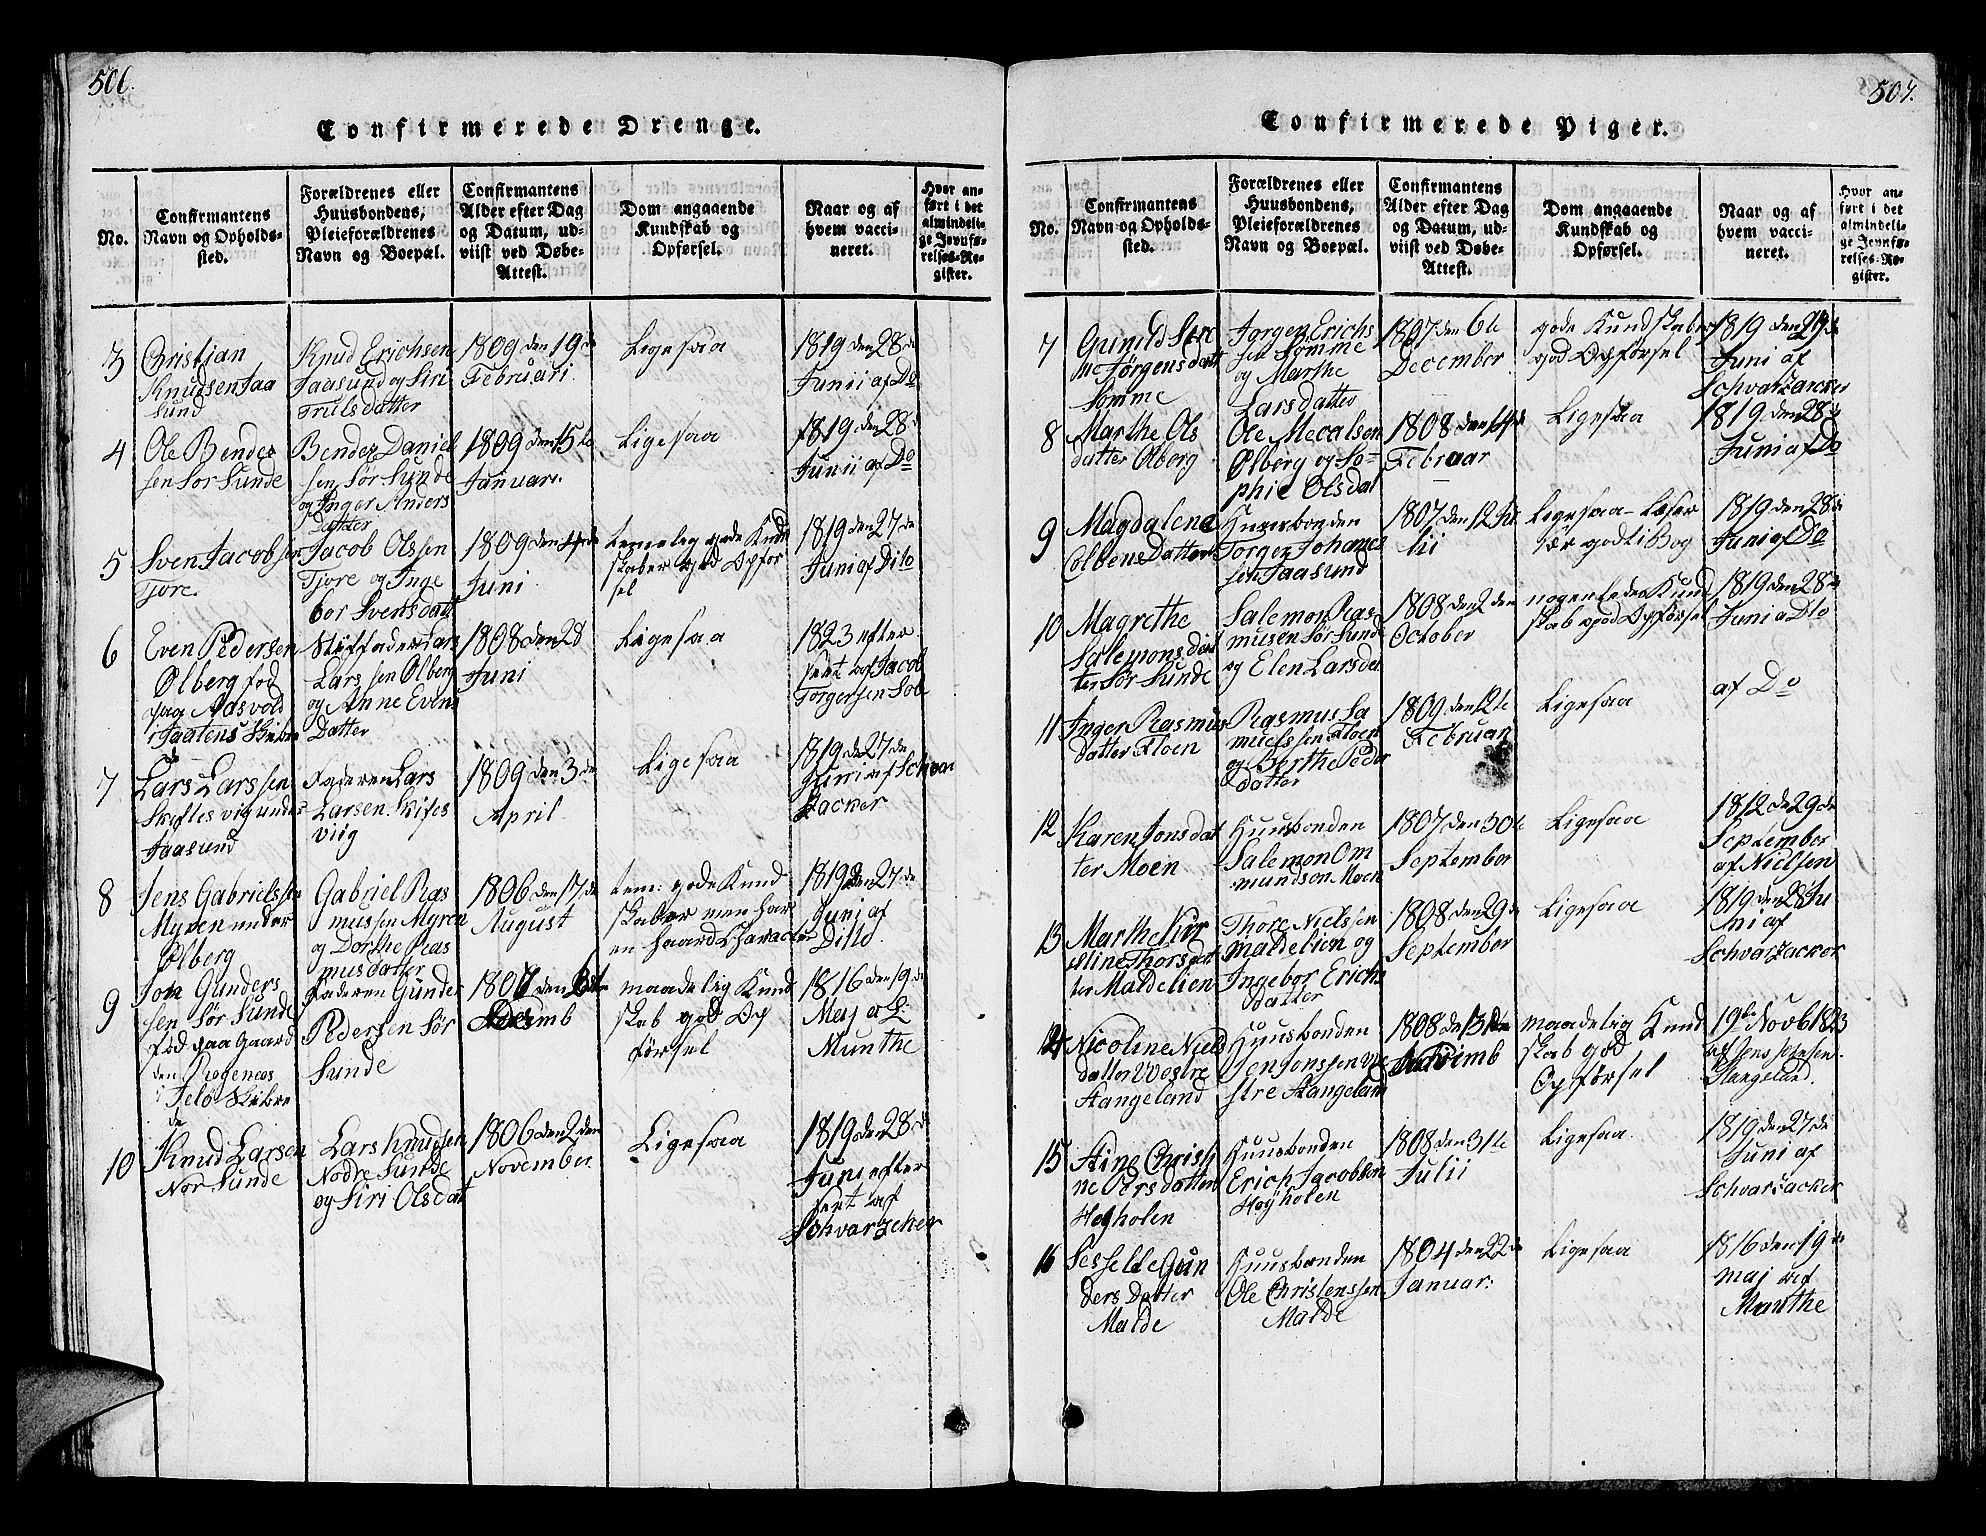 506.
Confirmerede Drenge.
No.
Confirmantens
Navn og Opholds-
sted.
Forældrenes eller
Huusbondens,
Pleieforældrenes
Navn og Boepæl.
Confirmantens
Alder efter Dag
og Datum, ud-
viist ved Døbe-
Attest.
Dom angaaende
Kundskab og
Opførsel.
Naar og af
hvem vacci-
neret.
Hvor an-
ført i det
almindeli-
ge Jevnfø-
relses-Re-
gister.
3
Christian
Knudsen Jaa
sund
Knud Erichsen
Jaasund og Siri
Trulsdatter
1809 den 19de
Februari
Ligesaa
1819 den 28de
Junii af Do
4
Ole Bendes
sen Sør Sunde
Bendes Daniel
sen Sør Sunde
og Inger Anders
Datter
1809 den 15te
Januar.
Ligesaa
1819 den 28
Junii af Do
5
Sven Jacobsen
Tjore.
Jacob Olssen
Tjore og Inge
bor Svensdatt
1809 den 4de
Juni
temelig gode Kund
skaber god Opfør
sel
1819 den 27de
Juni af Dito
6
Even Pedersen
Ølberg fød
paa Aasvold
i Jaatens Skibre
de
Styffader Lars
Larssen Ølberg
og Anne Evens
Datter
1808 den 28
Juni
Ligesaa
1823 efter
sert af Jacob
Torgersen Sole
7
Lars Larssen
Skiftesvig under
Jaasund
Faderen Lars
Larsen Skifes
viig
1809 den 3de
April
Ligesaa
1819 den 27de
Juni af Schvar
zacker
8
Jens Gabrielssen
Myren under
Ølberg
Gabriel Ras
mussen Myren
og Dorthe Ras
musdatter
1806 den 17de
August
tem: gode Kund
skaber men har
en haard Character
1819 den 27de
Juni af
Ditto.
9
Jon Gunders
sen Sør Sunde
fød paa Gaard
den Rogenæs
i Jelø Skibre
de
Faderen Gunder
Pedersen Sør
Sunde
1807 den 6te
Decemb
maadelig Kund
skab god Op
førsel
1816 den 19de
Maj af
Munthe
10
Knud Larsen
Nor Sunde
Lars Knudsen
Nodre Sunde
og Siri Olsdat
1806 den 2den
November
Ligesaa
1819 den 28de
Juni efter
sert af
Schvarzeker
507.
Confirmerede Piger.
No.
Confirmantens
Navn og Opholds-
sted.
Forældrenes eller
Huusbondens,
Pleieforældrenes
Navn og Boepæl.
Confirmantens
Alder efter Dag
og Datum, ud-
viist ved Døbe-
Attest.
Dom angaaende
Kundskab og
Opførsel.
Naar og af
hvem vacci-
neret.
Hvor an-
ført i det
almindeli-
ge Jevnfø-
relses-Re-
gister.
7
Gunild Stri
ne Jørgensdatt
Somme
Jørgen Erichs
sen Somme
og Marthe
Larsdatter
1807 den 6te
December
gode Kundskaber
god Opførsel
1819 den 27de
Juni af
Schvarzacker
8
Marthe Ols
datter Ølberg
Ole Mecalsen
Ølberg og So-
phie Olsdat
1808 den 14de
Februar
Ligesaa
1819 den 28de
Juni af Do
9
Magdalena
Colbens Datter
Huusbonden
Torger Johanes
sen Jaasund
1807 den 12te Ju
lii
Ligesaa - Læser
sær godt i Bog
1819 den 28de
Juni af Do
10
Magrethe
Salemonsdat
ter Sør Sunde
Salemon Ras
musen Sør Sunde
og Elen Larsdat
1808 den 2den
October
nogenledes Kund
skab god Opførsel
1819 den 28de
Juni a Dto
11
Inger Rasmus
datter Floen
Rasmus Sa
muelssen Floen
og Berthe Peder
Datter
1809 den 12te
Februari
Ligesaa
af Do
12
Karen Jonsdat
ter Moen
Huusbonden
Salemon Om
mundson Moen
1807 den 30te
September
Ligesaa
1812 de 29de
September
af Nielsen
13
Marthe Kir
stine Thorsdat
ter Maldelien
Thore Nielssen
Maldelien og
Ingebor Erichs
datter
1808 den 29de
September
Ligesaa
1819 den 28 Ju
ni af
Schvarzacker
14
Nicoline Niels
datter Westre
Stangeland
Huusbonden
Jon Jonssen We
stre Stangeland
1808 de 13de
Novemb
maadelig Kund
skab god
Opførsel
19de Novb 1823
af Jens Jensen
Stangeland.
15
Stine Christi
ne Persdatter
Høyholen
Huusbonden
Erich Jacobsen
Høyholen
1808 den 31te
Julii
Ligesaa.
1819 den 27de
Juni af
Schvarzacker
16
Sesselle Gun
ders Datter
Malde
Huusbonden
Ole Christenssen
Malde
1804 den 22de
Januar:
Ligesaa
1816 den 19de
maj af
Munthe